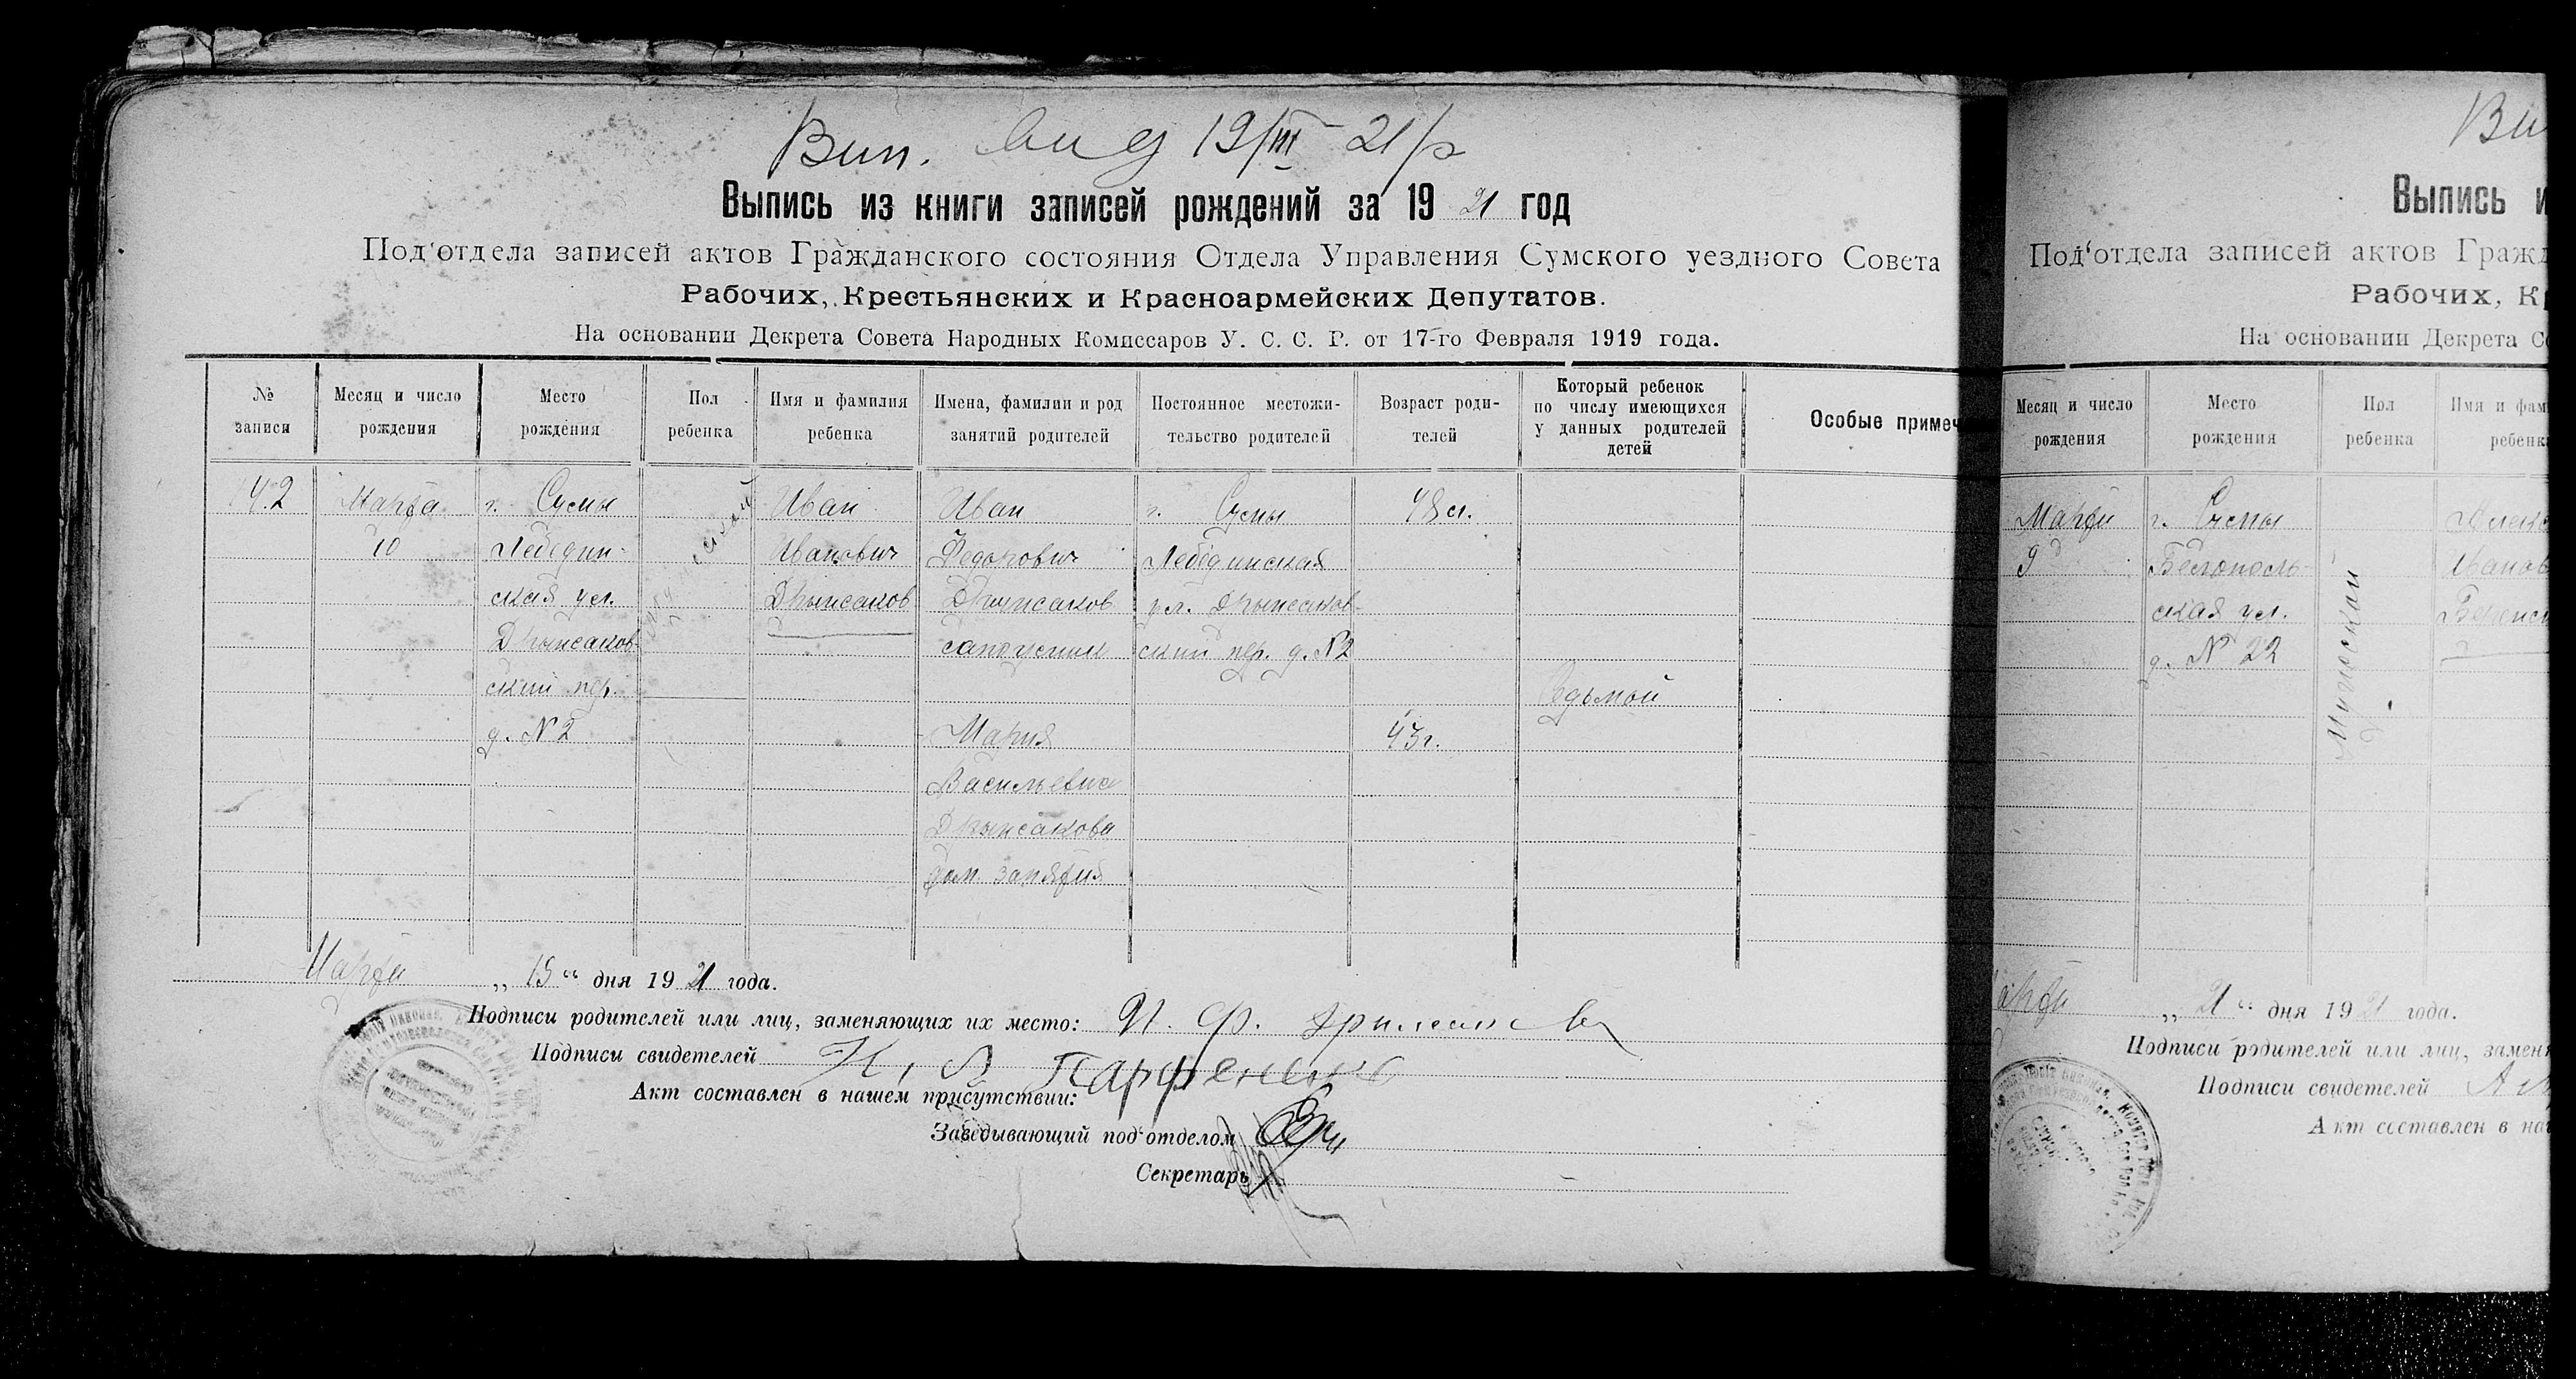 Вип. вид 19/III 21/р
Выпись из книги записей рождений за 19 21 год
Под‘отдела записей актов Гражданского состояния Отдела Управления Сумского уездного Совета
Рабочих, Крестьянских и Красноармейских Депутатов.
На основании Декрета Совета Народных Комиссаров У. С. С. Р. от 17-го Февраля 1919 года.
№ записи
Месяц и число рождения
Место рождения
Пол ребенка
Имя и фамилия ребенка
Имена, фамилии и род занятий родителей
Постоянное местожительство родителей
Возраст родителей
Который ребенок по числу имеющихся у данных родителей детей
Особые примеч
142
Марта
10
г. Сумы
Лебедин-
ская ул.
Дрынсаков-
ский пер.
д. N 2
Мужской
Иван
Иванович
Дрынсаков
Иван
Федорович
Дрынсаков
сапожник
Мария
Васильевна
Дрынсакова
дом. занятия
г. Сумы
Лебединская
ул. Дрынсаков-
ский пер. д. N 2
48 л.
43 г.
Седьмой
Марта „ 15 “ дня 19 21 года.
Подписи родителей или лиц, заменяющих их место: И. Ф.
Подписи свидетелей Парфененко
Акт составлен в нашем присутствии:
Заведывающий под‘отделом
Секретарь
Ви
Выпись и
Под‘отдела записей актов Гражд
Рабочих, Кр
На основании Декрета Со
Месяц и число рождения
Место рождения
Пол ребенка
Имя и фам
ребенк
Марта
9
г. Сумы
Белополь-
ская ул.
д. N 22
Мужской
Алекс
Иванов
арта „ 21 “ дня 19 21 года.
Подписи родителей или лиц, заменя
Подписи свидетелей
Акт составлен в на